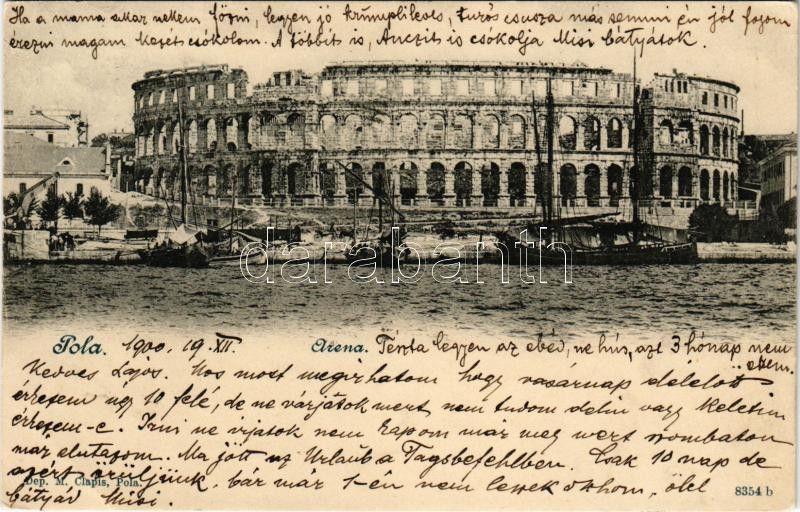 Ha a mama akar nekem főzni, legyen jó krumplileves, turós csusza más semmi én jól fogom
érezni magam Kezét csókolom. A többit is, Anczit is csókolja Misi bátyátok.
darabanth
Pola. 1900. 19. XII. Arena. Tészta legyen az ebéd, ne hús, azt 3 hónap nem
ettem.
Kedves Lajos. Nos most megirhatom hogy vasárnap délelött
érkezem úgy 10 felé, de ne várjátok mert nem tudom délin vagy Keletin
érkezem-e. Irni ne irjatok nem kapom már meg mert szombaton
már elutazom. Ma jött az Urlaub a Tagsbefehlben. Csak 10 nap de
azért örüljünk, bár már 1-én nem leszek otthon, ölel
bátyád Misi.
Dep. M. Clapis, Pola.
8354 b